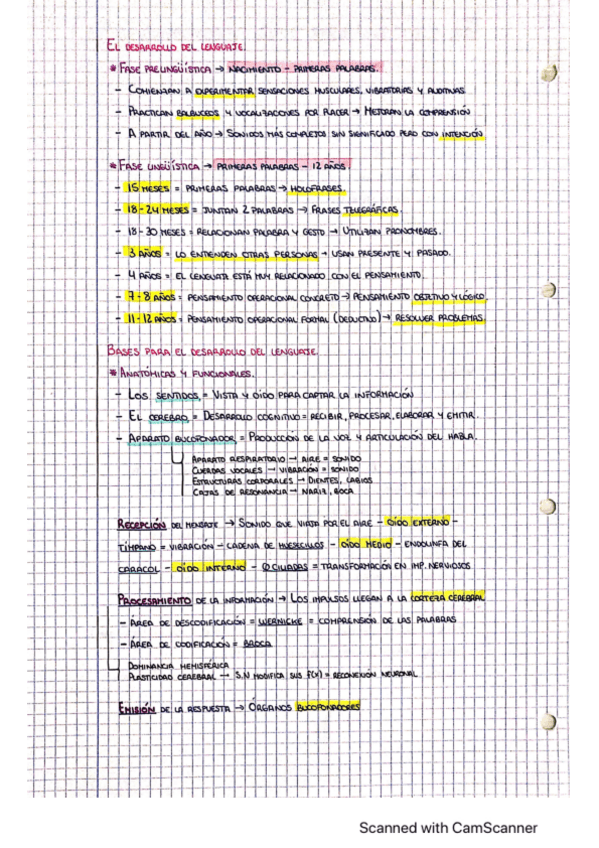 EL DESARROLLO DEL LENGUAJE.
* FASE PRELINGÜÍSTICA → NACIMIENTO - PRIMERAS PALABRAS.
- COMIENZAN A EXPERIMENTAR SENSACIONES MUSCULARES, VIBRATORIAS Y AUDITIVAS.
- PRACTICAN BALBUCEOS Y VOCALIZACIONES POR PLACER → MEJORAN LA COMPRENSIÓN
- A PARTIR DEL AÑO → SONIDOS MAS COMPLETOS SIN SIGNIFICADO PERO CON INTENCIÓN
* FASE LINGÜÍSTICA → PRIMERAS PALABRAS - 12 AÑOS.
- 15 MESES = PRIMERAS PALABRAS → HOLOFRASES.
- 18-24 MESES = JUNTAN 2 PALABRAS → FRASES TELEGRÁFICAS.
- 18-30 MESES = RELACIONAN PALABRA Y GESTO → UTILIZAN PRONOMBRES.
- 3 AÑOS = LO ENTIENDEN OTRAS PERSONAS → USAN PRESENTE Y PASADO.
- 4 AÑOS = EL LENGUAJE ESTÁ MUY RELACIONADO CON EL PENSAMIENTO.
- 7-8 AÑOS = PENSAMIENTO OPERACIONAL CONCRETO → PENSAMIENTO OBJETIVO Y LÓGICO.
- 11-12 AÑOS = PENSAMIENTO OPERACIONAL FORMAL (DEDUCTIVO) → RESOLVER PROBLEMAS.
BASES PARA EL DESARROLLO DEL LENGUAJE.
* ANATÓMICAS Y FUNCIONALES.
- LOS SENTIDOS = VISTA Y OÍDO PARA CAPTAR LA INFORMACIÓN
- EL CEREBRO = DESARROLLO COGNITIVO = RECIBIR, PROCESAR, ELABORAR Y EMITIR.
- APARATO BUCOFONADOR = PRODUCCIÓN DE LA VOZ Y ARTICULACIÓN DEL HABLA.
APARATO RESPIRATORIO → AIRE = SONIDO
CUERDAS VOCALES → VIBRACIÓN = SONIDO
ESTRUCTURAS CORPORALES → DIENTES, LABIOS
CAJAS DE RESONANCIA → NARIZ, BOCA
RECEPCIÓN DEL MENSAJE → SONIDO QUE VIAJA POR EL AIRE - OÍDO EXTERNO -
TÍMPANO = VIBRACIÓN - CADENA DE HUESECILLOS - OÍDO MEDIO - ENDOLINFA DEL
CARACOL - OÍDO INTERNO - CILIADAS = TRANSFORMACIÓN EN IMP. NERVIOSOS
PROCESAMIENTO DE LA INFORMACIÓN → LOS IMPULSOS LLEGAN A LA CORTEZA CEREBRAL
- ÁREA DE DESCODIFICACIÓN = WERNICHE = COMPRENSIÓN DE LAS PALABRAS
- ÁREA DE CODIFICACIÓN = BROCA
DOMINANCIA HEMISFÉRICA
PLASTICIDAD CEREBRAL → S.N MODIFICA SUS f(x) = RECONEXIÓN NEURONAL
EMISIÓN DE LA RESPUESTA → ÓRGANOS BUCOFONADORES
Scanned with CamScanner